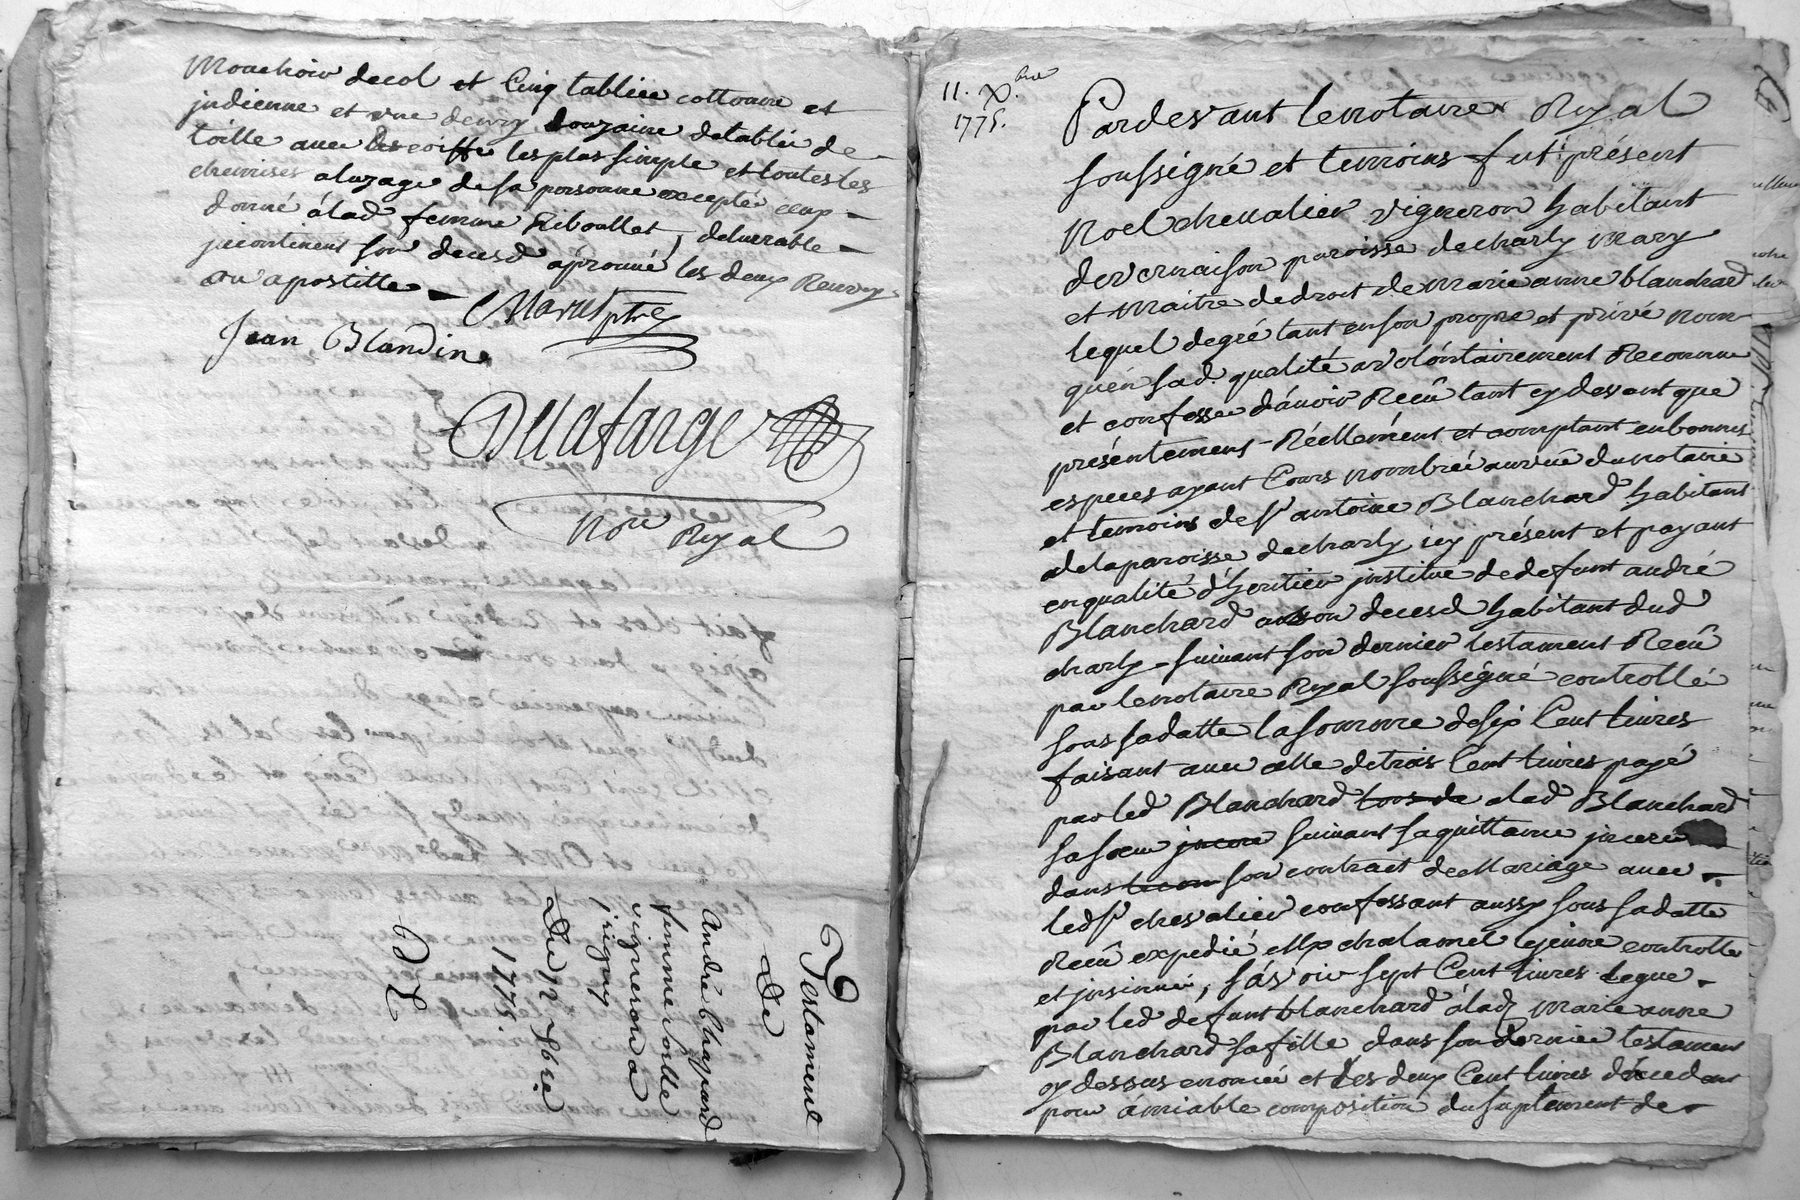 Mouchoir de col et Cinq tablier cottonne et
jndienne et une demy douzaine de tablié de
toille avec les coiffe les plus simple et toutes les
chemises a luzage de sa personne excepté ceux
donné á lad femme Riboullet, deluvrable
jncontinent son decesd aprouvé les deux Renvoy
ou apostille
Marest ptre
Jean Blandin
Delafarge
No.re Royal
Testament
De
André
femme
vigneron a
jrigny
Du 12 9bre
1775.
11. X.bre
1775.
Pardevant le notaire Royal
soussigné et temoins fut présent
Noel chevalier vigneron habitant
de vernaison paroisse de charly mary
et maitre de droit de marie anne blanchard
lequel de gré tant en son propre et privé nom
qu'en sad. qualité a volóntairement Reconnu
et confessé d'ávoir Reçû tant cy devant que
présentement Réellement et comptant en bonnes
especes ayant Cours nombrée au vuë du notaire
et temoins de Sr antoine Blanchard habitant
de la paroisse de charly icy présent et payant
en qualité d'héritier jnstitué de defunt andré
Blanchard a son decesd habitant dud
charly suivant son dernier testament Reçû
par le notaire Royal soussigné controllé
sous sa datte la somme de six Cent livres
faisant avec celle de trois Cent livres payé
par led Blanchard lors de a lad Blanchard
sa soeur suivant sa quittance jnceré
dans son contract de Mariage avec
led Sr chevalier confessant aussy sous sa datte
Reçû expedié Me chalamel le jeune controllé
et jnsinué, sávoir sept Cent livres legué
par led defunt blanchard á lad Marie anne
Blanchard sa fille dans son dernier testament
cy dessus enoncé et les deux Cent livres
pour ámiable composition du suplement de